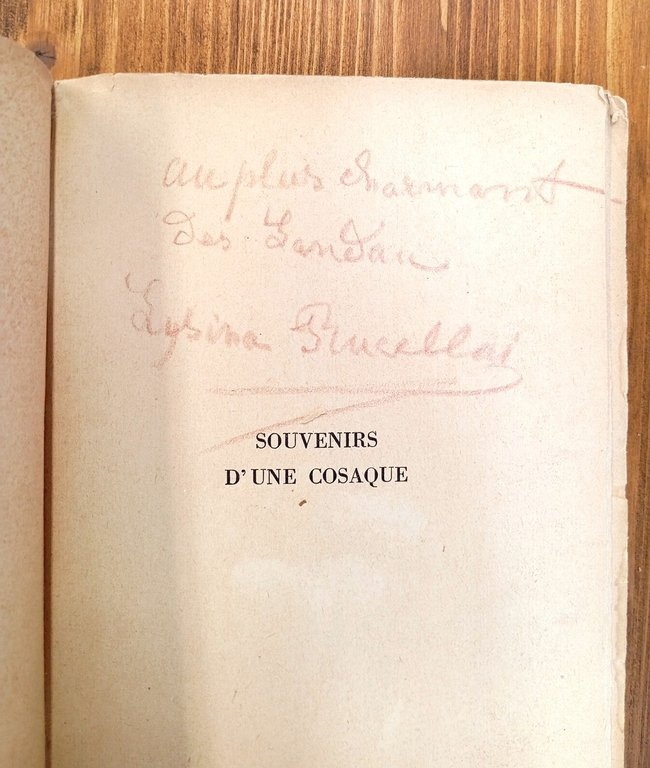 au plus charmant
des Landau
Lysina Rucellai
SOUVENIRS
D'UNE COSAQUE